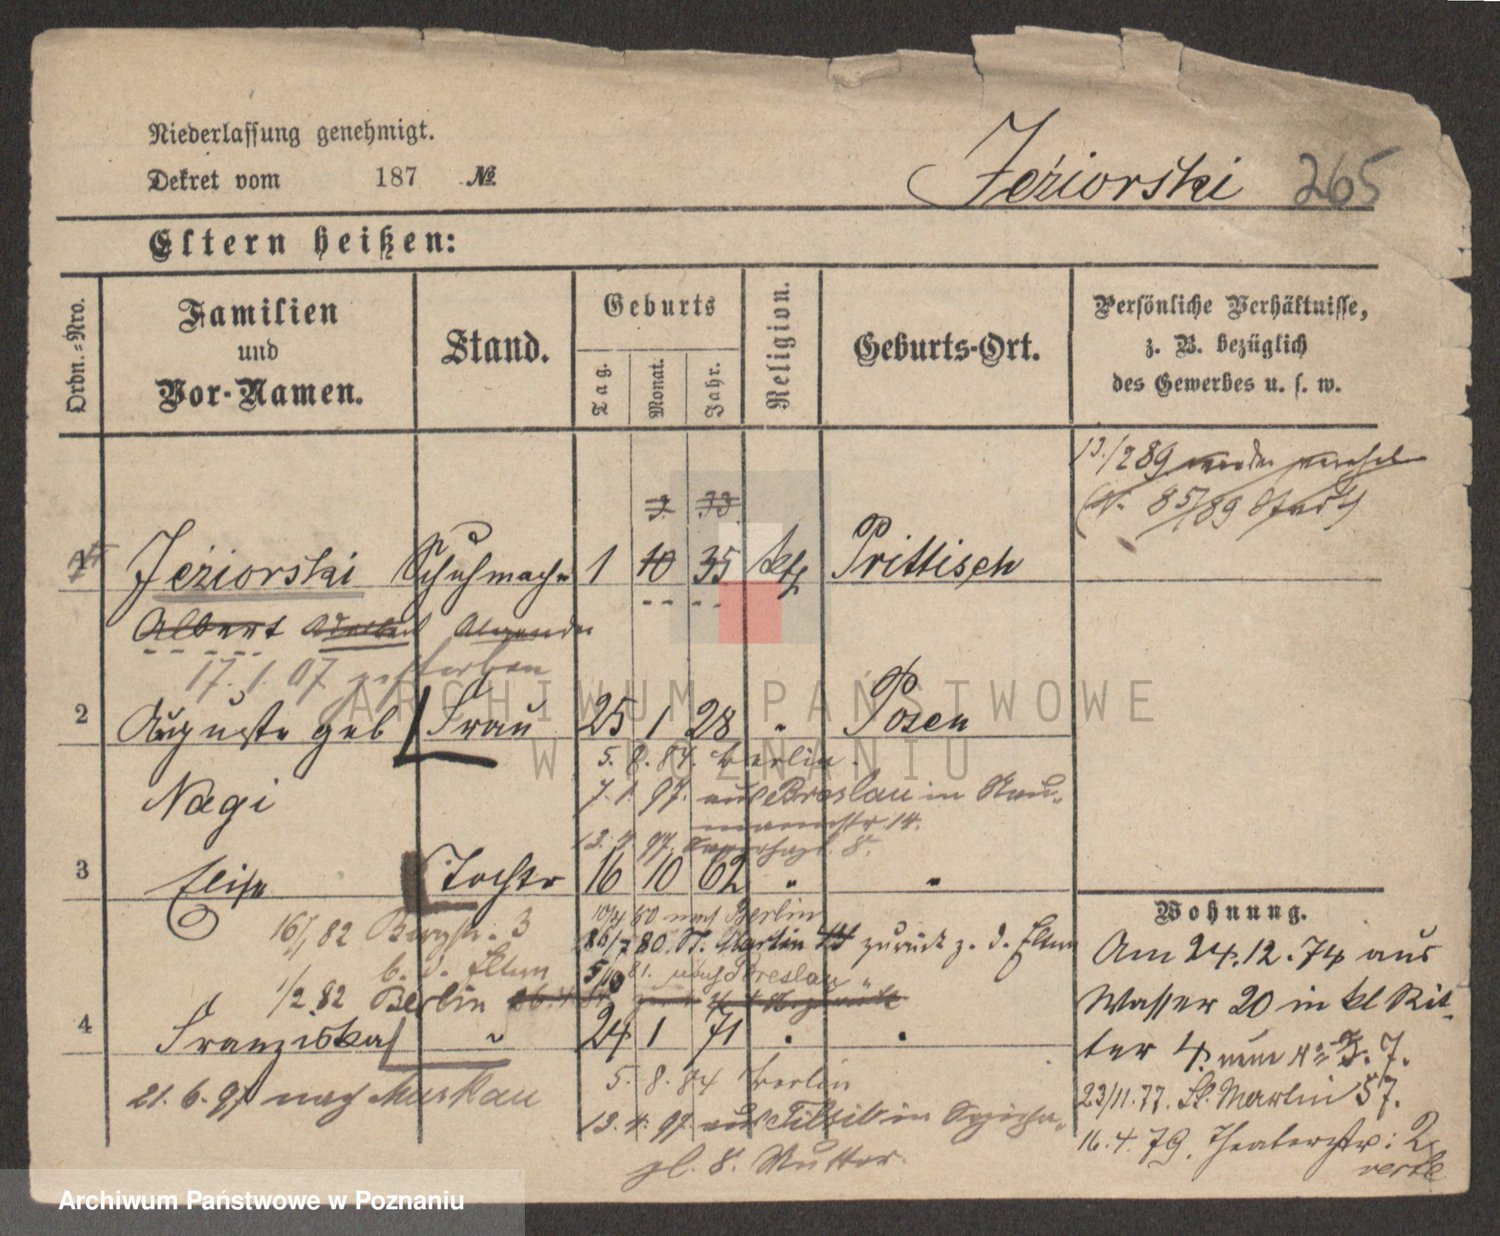 Niederlassung genehmigt.
Dekret vom 187 №
Jeźiorski 265
Eltern heißen:
Ordn.-Nro.
Familien
und
Vor-Namen.
Stand.
Geburts
Tag.
Monat.
Jahr.
Religion.
Geburts-Ort.
Persönliche Verhältnisse,
z. B. bezüglich
des Gewerbes u. s. w.
13./2 89
85/89
3. 33.
1 Jeźiorski Schuhmacher 1 10 35 kth Prittisch
Albert Adalbert Alexander
17. 1. 07 gestorben
2 Auguste geb Frau 25 1 28 " Posen
Nagi
5. 8. 84. Berlin.
7. 1. 97. aus Breslau in Nau-
mannstr. 14.
13. 4. 97. 8.
3 Elise Tochter 16 10 62 " "
10/4 80 nach Berlin
26/7 80. St. Martin zurück z. d. Eltern
81. nach Breslau
16/1 82 Bergstr. 3
b. d. Eltern
1/2 82 Berlin
4 Franziska " 24 1 71 " "
21. 6. 97 nach Muskau
5. 8. 84 Berlin
13. 4. 97 aus Tilsit in
gl. 8. Mutter.
Wohnung.
Am 24.12.74 aus
Wasser 20 in kl Rit-
ter 4. nun No 7.
23/11.77. St. Martin 57.
16.4.79. Theaterstr: 2
verte
ARCHIWUM PAŃSTWOWE
W POZNANIU
Archiwum Państwowe w Poznaniu